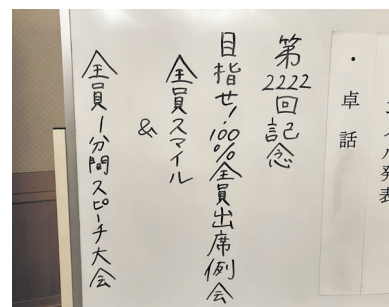 発表
・卓話
第2222回記念
目指せ!100%全員出席例会
全員スマイル
&
全員1分間スピーチ大会